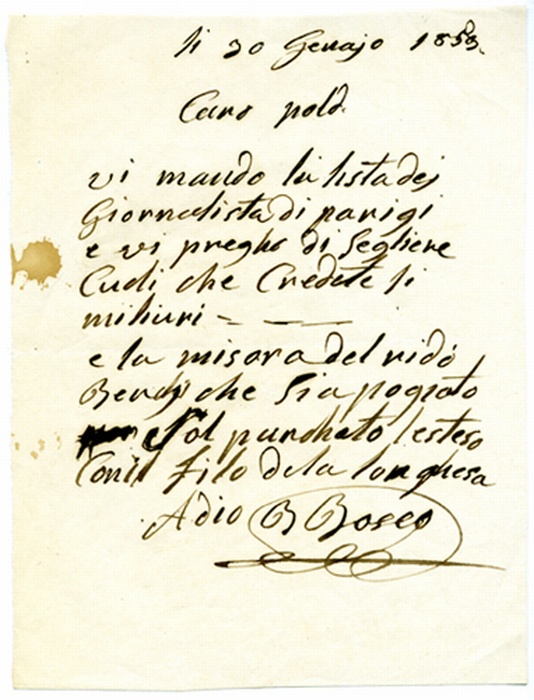 li 30 Genajo 1853.
Caro pold.
vi mando la lista dej
Giornalista di parigi
e vi pregho di Segliere
Cudi che Credete li
miliuri - —
e la misora del ridò
che Sia pogiato
Sol parchato lesteso
Con il filo dela longhesa
Adio B Bosco